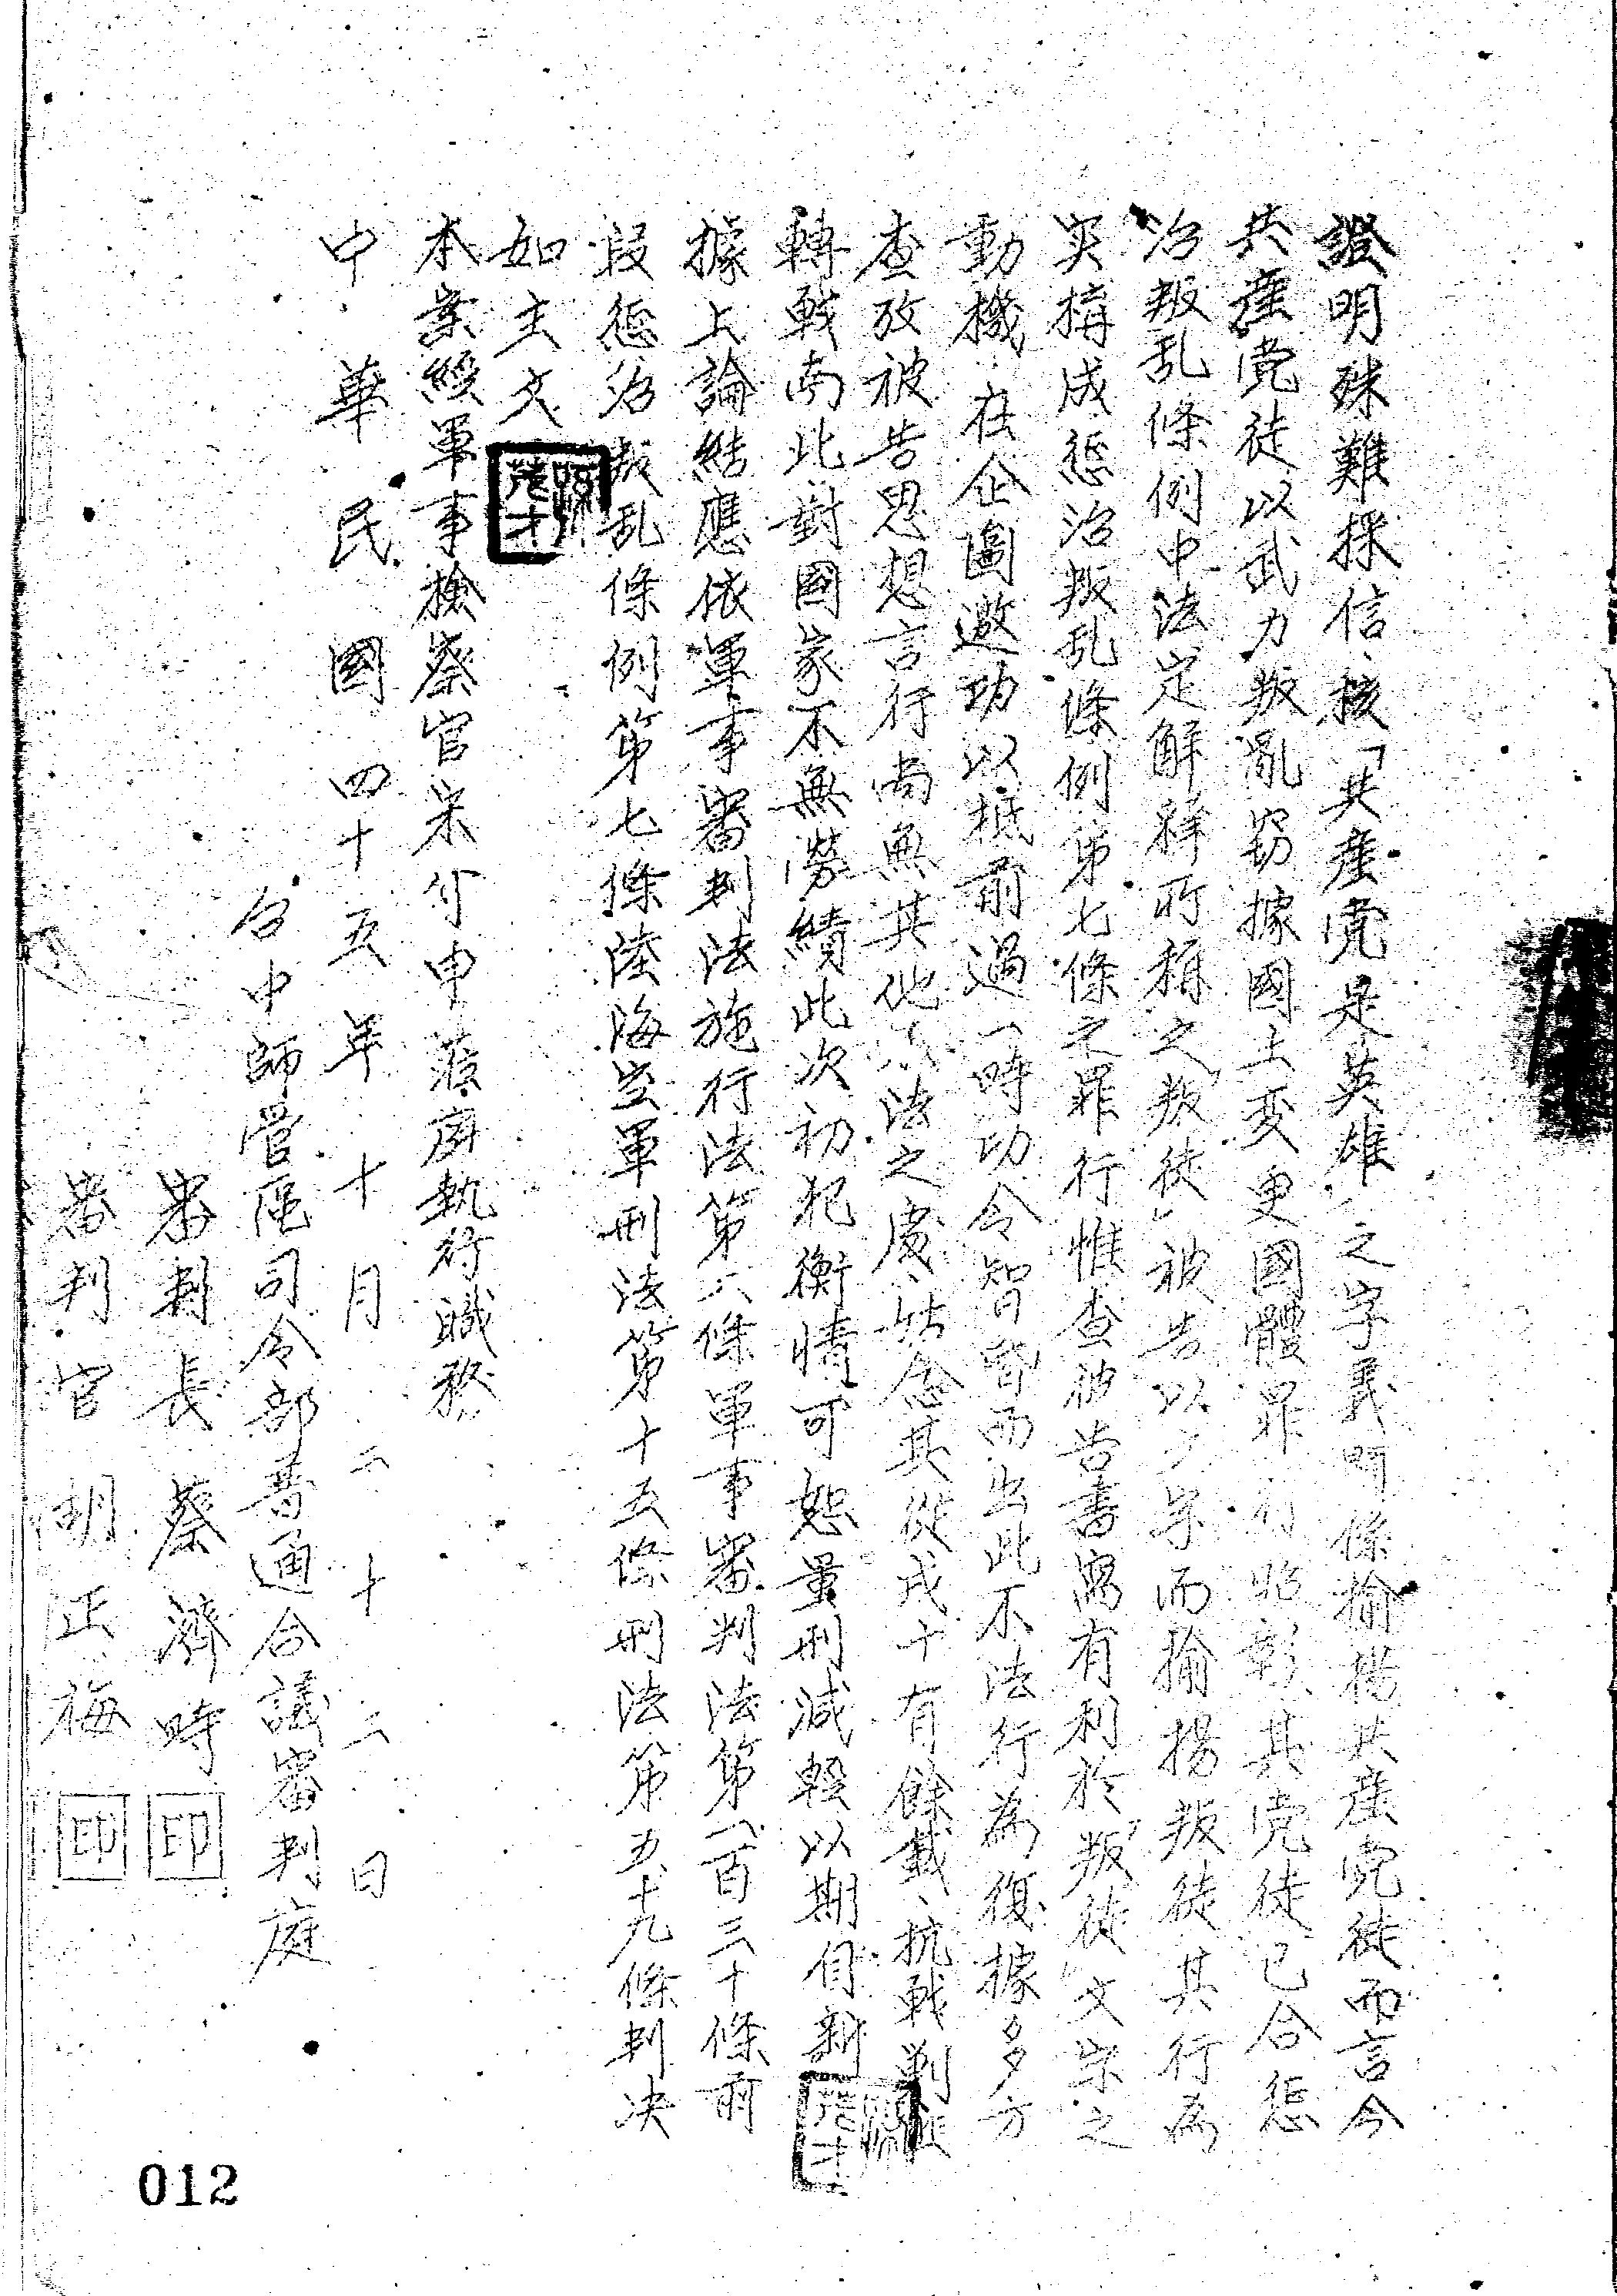 證明殊難採信、核「共產党是英雄」之字義所係揄揚共產党徒而言今
共產党徒以武力叛亂窃據國土变更國體罪行昭彰、其党徒已合惩
治叛乱條例中法定解釋所稱之叛徒」被告以文字而揄揚叛徒其行為
实構成惩治叛乱條例第七條之罪行惟查被告書寫有利於叛徒文字之
動機在企圖邀功以抵前過一時功令智昏而出此不法行為復據多方
查攷被告思想言行尚無其他不法之處、姑念其從戎十有餘載、抗戰剿匪
轉戰南北對國家不無勞績此次初犯衡情可恕量刑減輕以期自新
據上論結應依軍事審判法施行法第六條軍事審判法第一百三十條前
段惩治叛乱條例第七條陸海空軍刑法第十五條刑法第五十九條判决
如主文
本案經軍事檢察官宋介申蒞庭執行職務
中華民國四十五年十月二十二日
台中師管區司令部普通合議審判庭
審判長蔡濟時印
審判官胡正梅印
茂才
茂才
012